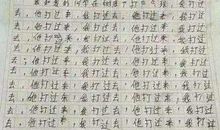 我打过
去，他打过来，我打过去，他打过来，我打过
去，他打过来，我打过去，他打过来，我打过
去，他打过来，我打过去，他打过来，我打过
去，他打过来，我打过去，他打过来，我打过
去，他打过来，我打过去，他打过来，我打过
去，他打过来，我打过去，他打过来，我打过
去，他打过来，我打过去，他打过来，我打过
去，他打过来，我打过去，他打过来，我打过